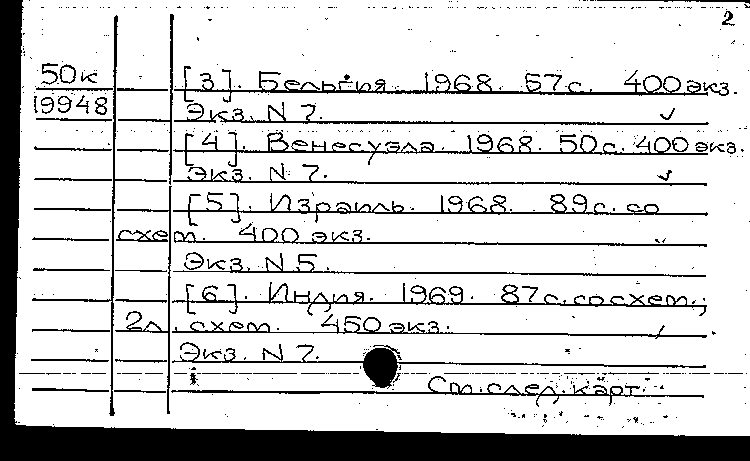 2
50к [3]. Бельгия. 1968. 57с. 400 экз.
19948 Экз. N 7.
[4]. Венесуэла. 1968. 50с. 400 экз.
Экз. N 7.
[5]. Израиль. 1968. 89с. со
схем. 400 экз.
Экз. N 5.
[6]. Индия. 1969. 87с. со схем.;
2л. схем. 450 экз.
Экз. N 7.
См. след. карт.